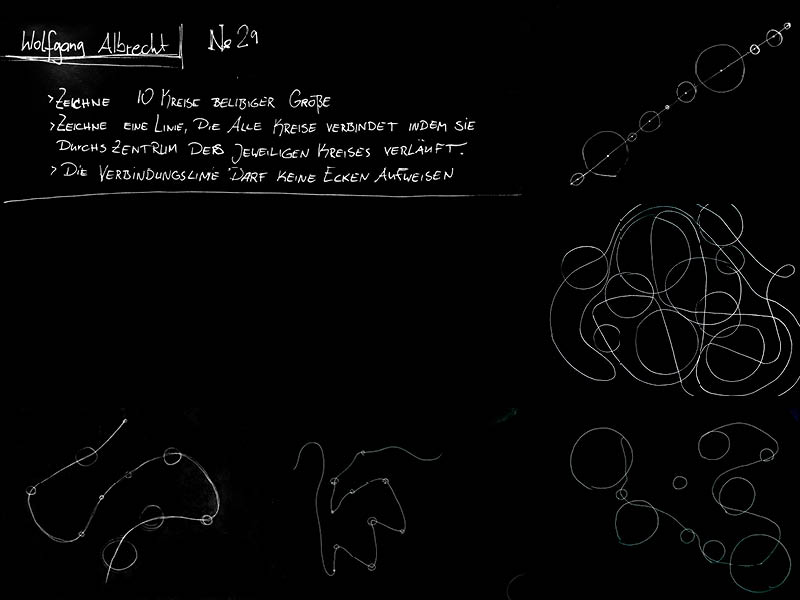 Wolfgang Albrecht No 29
> ZEICHNE 10 KREISE BELIBIGER GRÖßE
> ZEICHNE EINE LINIE, DIE ALLE KREISE VERBINDET INDEM SIE
DURCHS ZENTRUM DES JEWEILIGEN KREISES VERLÄUFT.
> DIE VERBINDUNGSLINIE DARF KEINE ECKEN AUFWEISEN